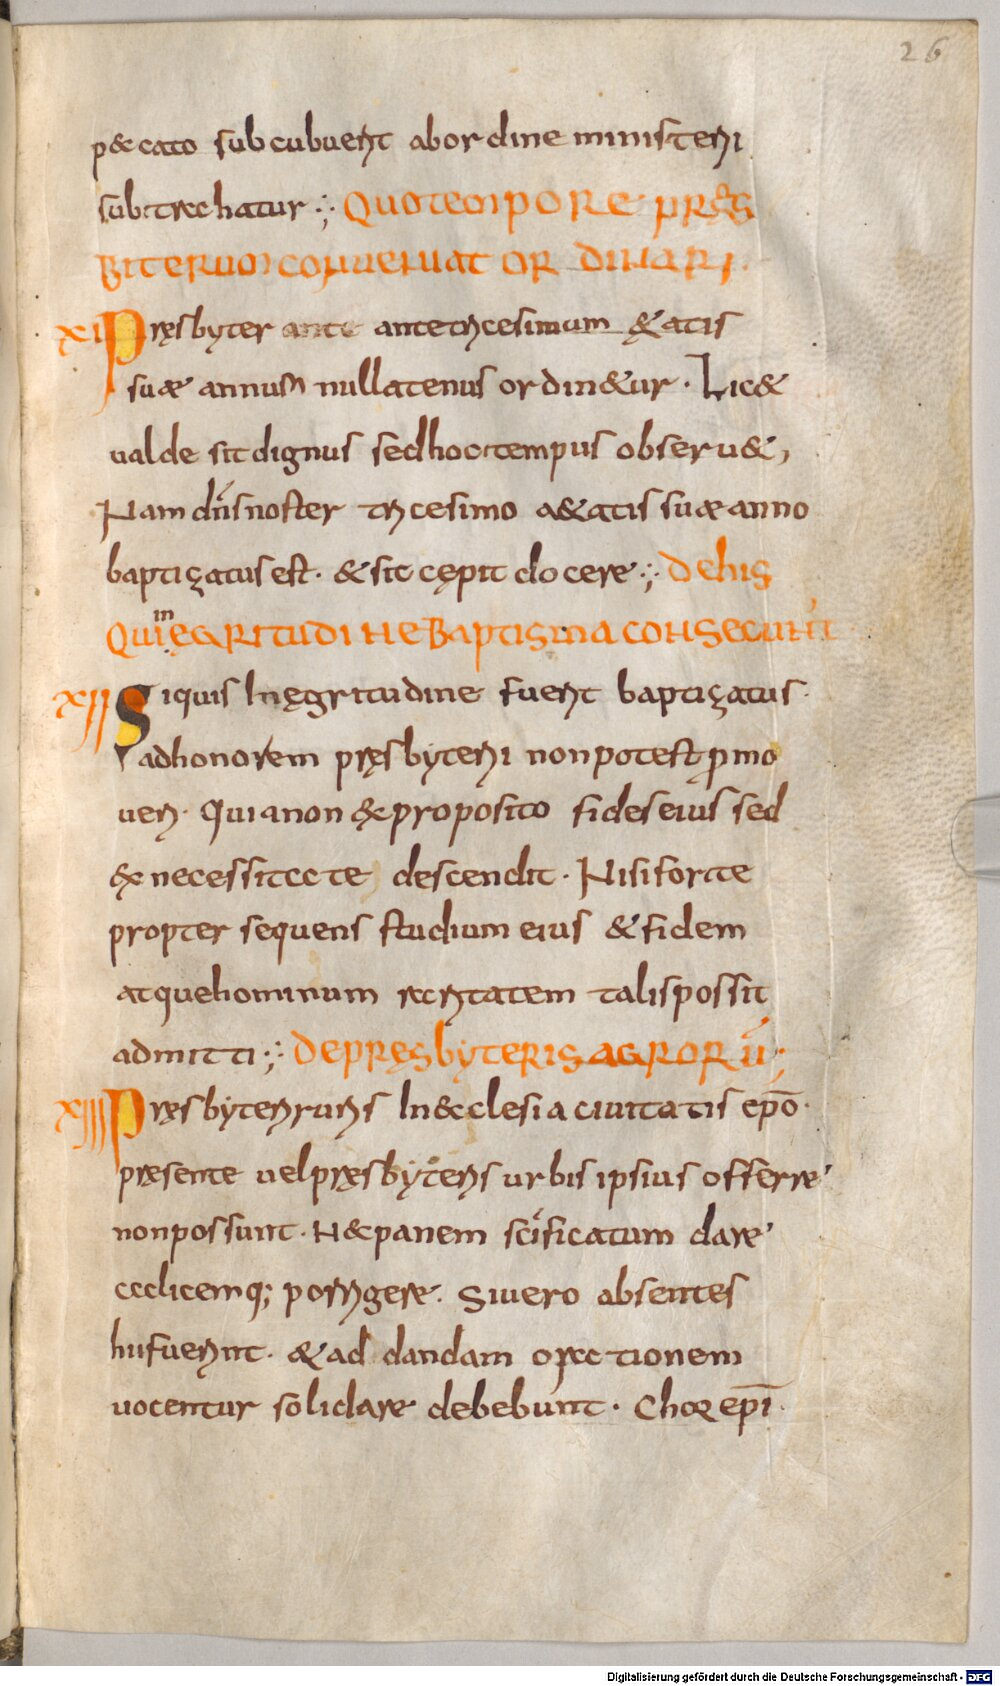 26
p&cato subcubuerit abordine ministerii
subtrahatur ·:· Quo tempore pręs
biterum conveniat ordinari·
XI Pręsbyter ante ante tricesimum &atis
suæ annum nullatenus ordin&ur · Lic&
ualde sit dignus sed hoc tempus obseru&,
Nam dns̄ noster tricesimo a&atis suæ anno
baptizatus est · & sic cępit docere ·:· De his
Qui in ęgritudine baptisma consecunt̄
XII Si quis In ęgritudine fuerit baptizatus·
ad honorem pręsbyterii non potest promo
ueri· Quia non ex proposito fides eius sed
ex necessitate descendit · Nisi forte
propter sequens studium eius & fidem
atque hominum raritatem talis possit
admitti ·:· De pręsbyteris agrorū;
XIII Pręsbyteri ruris In ecclesia ciuitatis epō·
pręsente uel pręsbyteris urbis ipsius offerre
non possunt · N& panem scīficatum dare
calicemq; porrigere · Si uero absentes
hii fuerint · & ad dandam orationem
uocentur soli dare debebunt · Chorepī·
Digitalisierung gefördert durch die Deutsche Forschungsgemeinschaft - DFG